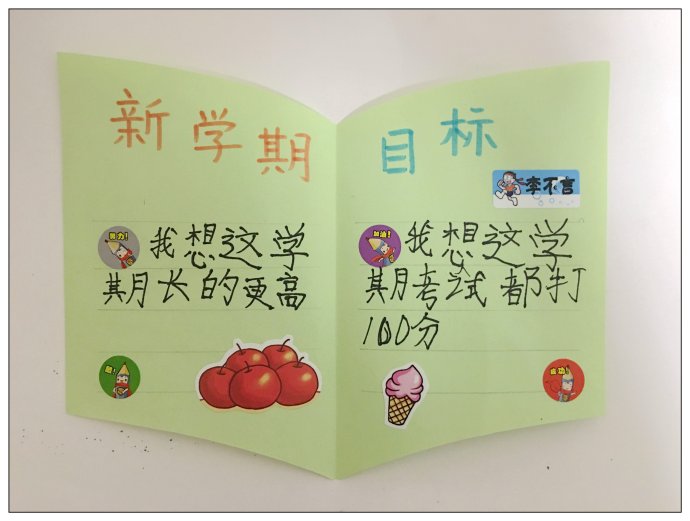 新学期
努力!
我想这学
期月长的更高
酷!
目标
李不言
加油!
我想这学
期月考试都打
100分
成功!